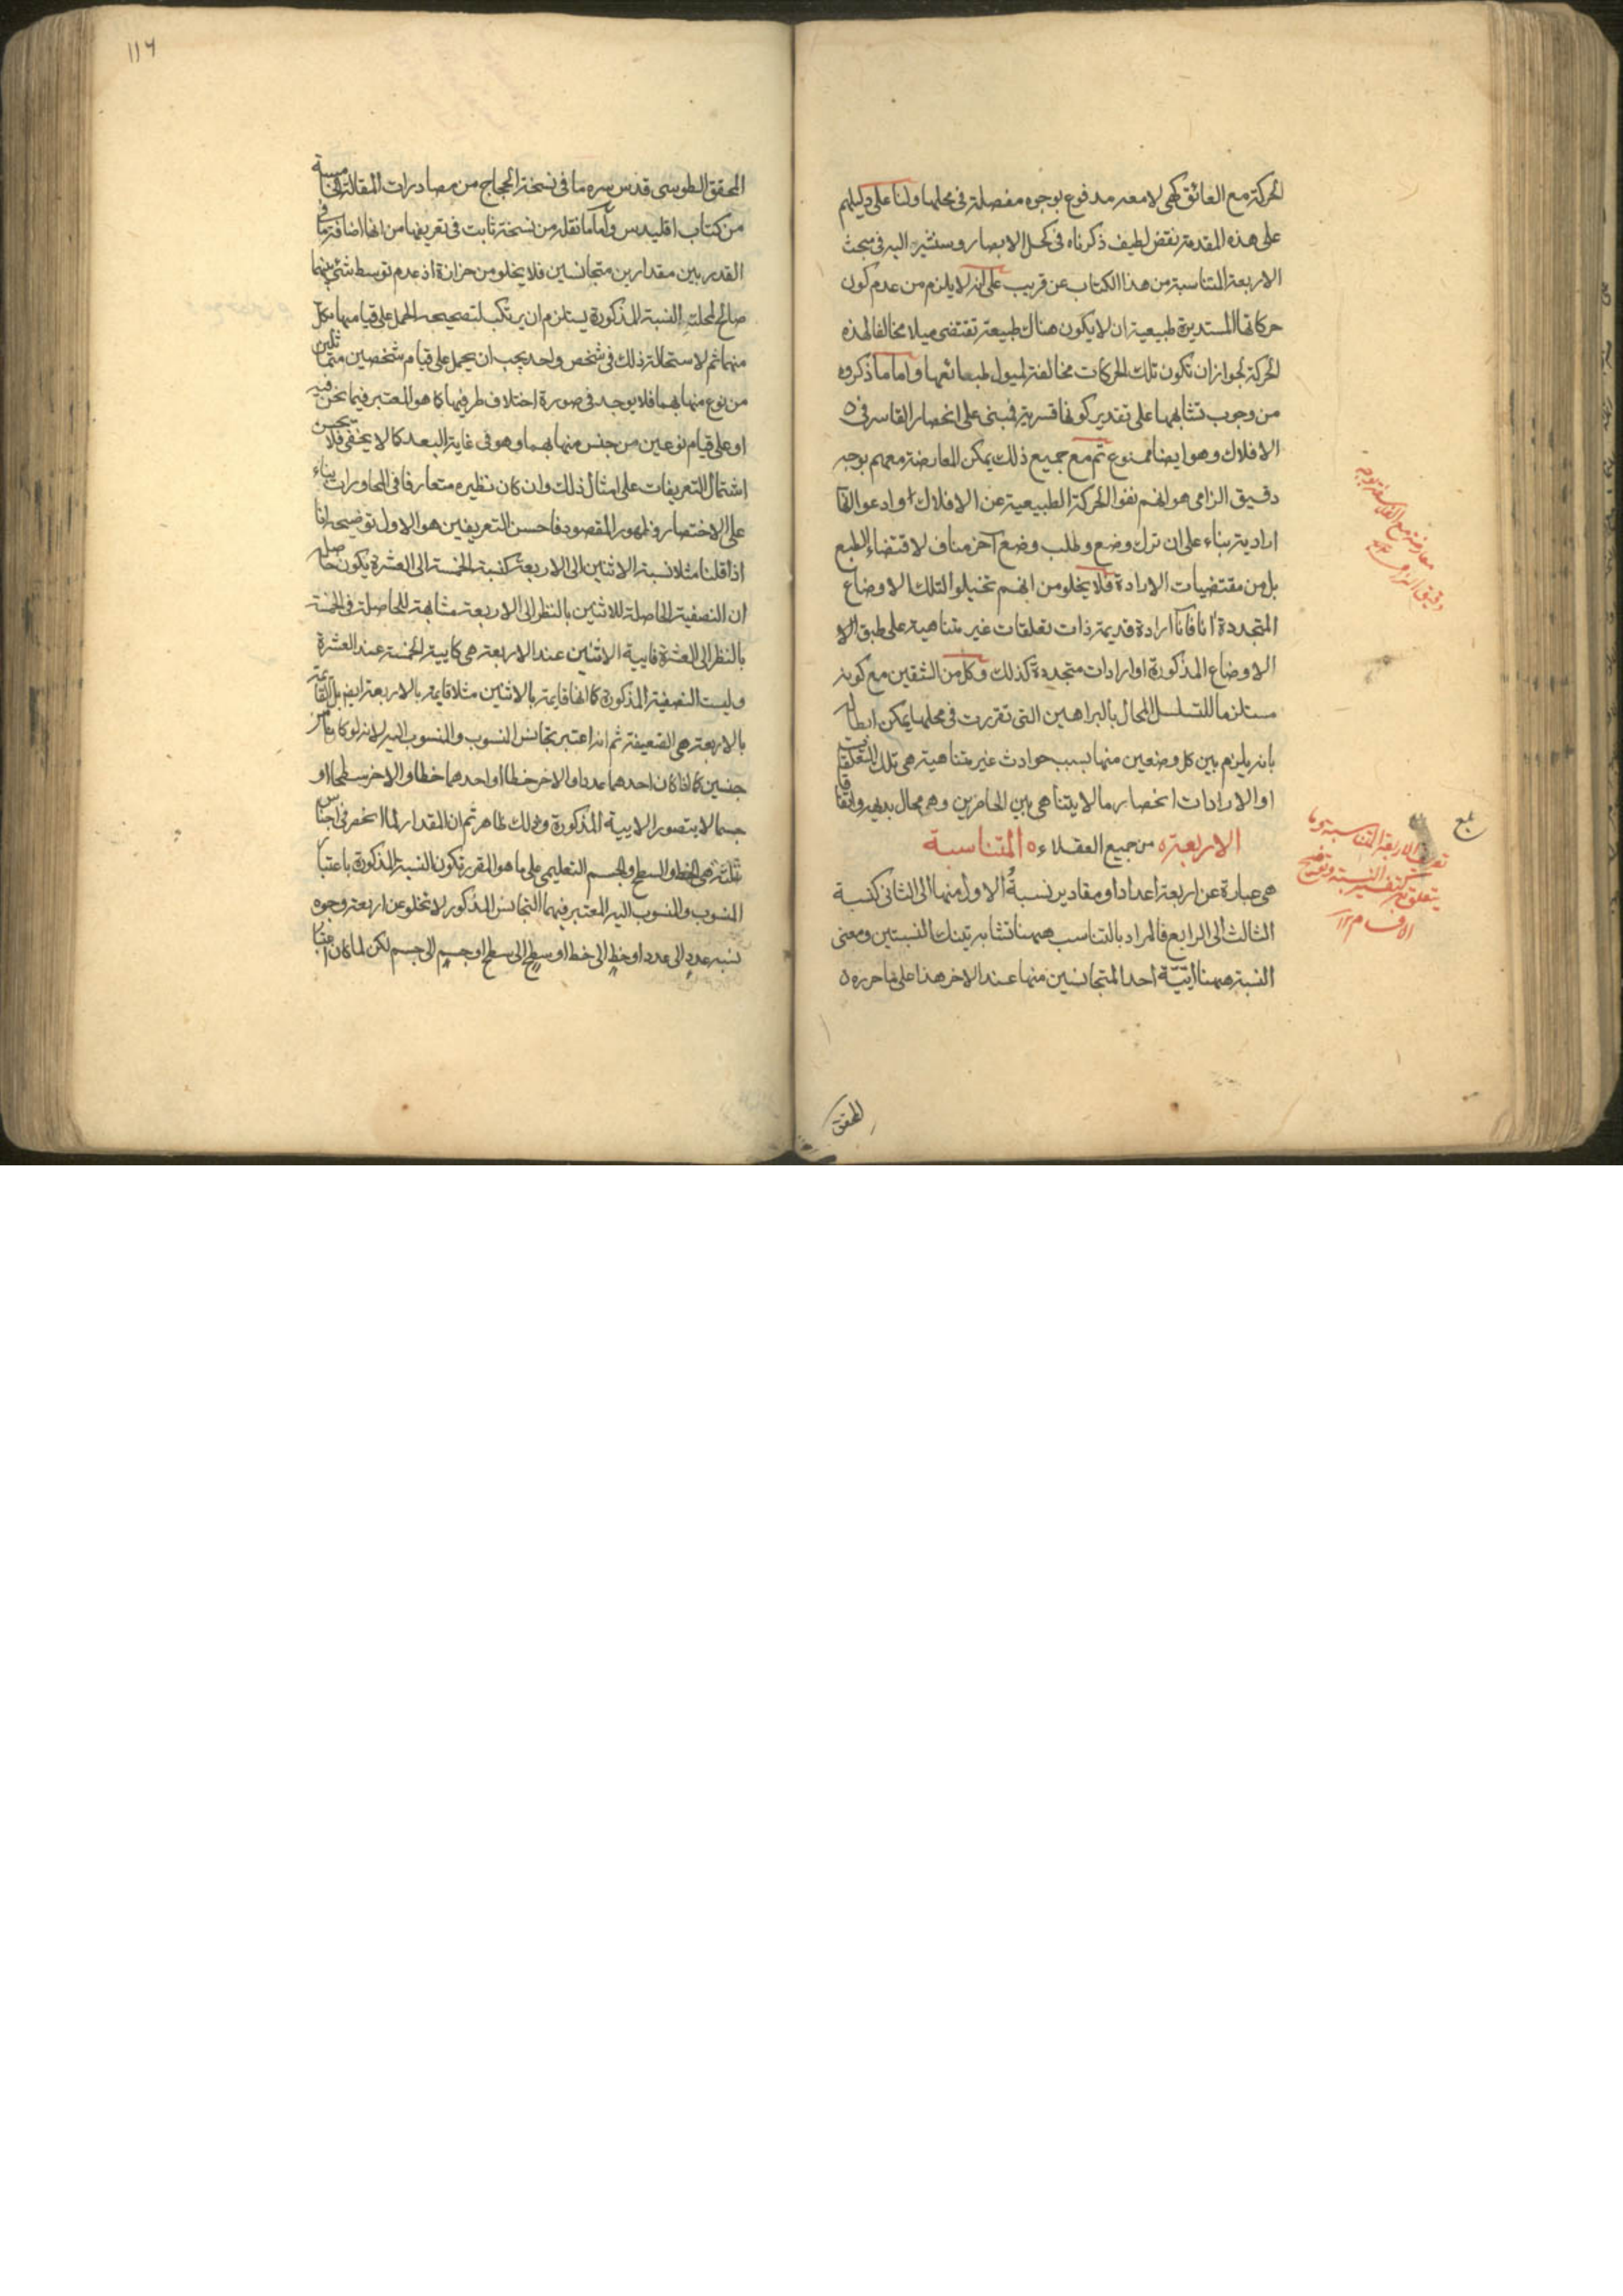 الحركة مع العائق كهى لا معه مدفوع بوجوه مفصلة فى محلها ولنا على دليلهم
على هذه المقدمة نقض لطيف ذكرناه فى كحل الابصار وسنشير اليه فى مبحث
الاربعة المتناسبة من هذا الكتاب عن قريب على انه لا يلزم من عدم كون
حركاتها المستديرة طبيعية ان لا يكون هناك طبيعة تقتضى ميلا مخالفا لهذه
الحركة لجواز ان تكون تلك الحركات مخالفة لميول طبعائعها واما ما ذكروه
من وجوب تشابهها على تقدير كونها قسرية فمبنى على انحصار القاسر فى
الافلاك وهو ايضا ممنوع ثم مع جميع ذلك يمكن المعارضة معهم بوجه
دقيق الزامى هو انهم نفوا الحركة الطبيعية عن الافلاك وادعوا انها
ارادية بناء على ان ترك وضع وطلب وضع آخر مناف لاقتضاء الطبع
بل من مقتضيات الارادة فلا يخلو من انهم تخيلوا لتلك الاوضاع
المتجددة انا فانا ارادة قديمة ذات تعلقات غير متناهية على طبق
الاوضاع المذكورة او ارادات متجددة كذلك وكل من الشقين مع كونه
مستلزما للتسلسل المحال بالبراهين التى تقررت فى محلها يمكن ابطاله
بانه يلزم بين كل وضعين منها بسبب حوادث غير متناهية هى تلك التعلقات
او الارادات انحصار ما لا يتناهى بين الحاصرين وهو محال بديهة واتفاقا
من جميع العقلاء الاربعة المتناسبة
هى عبارة عن اربعة اعداد او مقادير نسبة الاول منها الى الثانى كنسبة
الثالث الى الرابع فالمراد بالتناسب ههنا تشابه تينك النسبتين ومعنى
النسبة ههنا ايّيّة احد المتجانسين منها عند الاخر هذا على ما حرره
المحقق
معارضة مع الفلاسفة بوجه
دقيق الزامى
بلغ
تعريف الاربعة المتناسبة وما
يتعلق به كتفسير النسبة وتوضيح
١١٦
المحقق الطوسى قدس سره ما فى نسخة الحجاج من مصادرات المقالة الخامسة
من كتاب اقليدس واما ما نقله من نسخة ثابت فى تعريفها من انها اضافة ما فى
القدر بين مقدارين متجانسين فلا يخلو من حزازة اذ عدم توسط شئ بينهما
صالح لمحلية النسبة المذكورة يستلزم ان يرتكب لتصحيحه الحمل على قيامها بكل
منهما ثم لاستحالة ذلك فى شخص واحد يجب ان يحمل على قيام شخصين متماثلين
من نوع منها بهما فلا يوجد فى صورة اختلاف طرفيها كما هو المعتبر فيما نحن فيه
او على قيام نوعين من جنس منها بهما وهو فى غاية البعد كما لا يخفى فلا يحسن
اشتمال التعريفات على امثال ذلك وان كان نظيره متعارفا فى المحاورات بناء
على الاختصار وظهور المقصود فاحسن التعريفين هو الاول توضيحه انا
اذا قلنا مثلا نسبة الاثنين الى الاربعة كنسبة الخمسة الى العشرة يكون حاصله
ان النصفية الحاصلة للاثنين بالنظر الى الاربعة مشابهة للحاصلة فى الخمسة
بالنظر الى العشرة فايية الاثنين عند الاربعة هى كايية الخمسة عند العشرة
وليست النصفية المذكورة كما انها قايمة بالاثنين مثلا قايمة بالاربعة ايض بل القائمة
بالاربعة هى الضعيفة ثم انه اعتبر تجانس المنسوب والمنسوب اليه لانه لو كانا من
جنسين كما اذا كان احدهما عددا والاخر خطا او احدهما خطا والاخر سطحا او
جسما لا يتصور الايية المذكورة وذلك ظاهر ثم ان المقدار لما انحصر فى اجناس
ثلثة هى الخط والسطح والجسم التعليمى على ما هو المقرر تكون النسبة المذكورة باعتبار
المنسوب والمنسوب اليه المعتبر فيهما التجانس المذكور لا تخلو عن اربعة وجوه
نسبة عدد الى عدد او خط الى خط او سطح الى سطح او جسم الى جسم لكن لما كان اعتبار